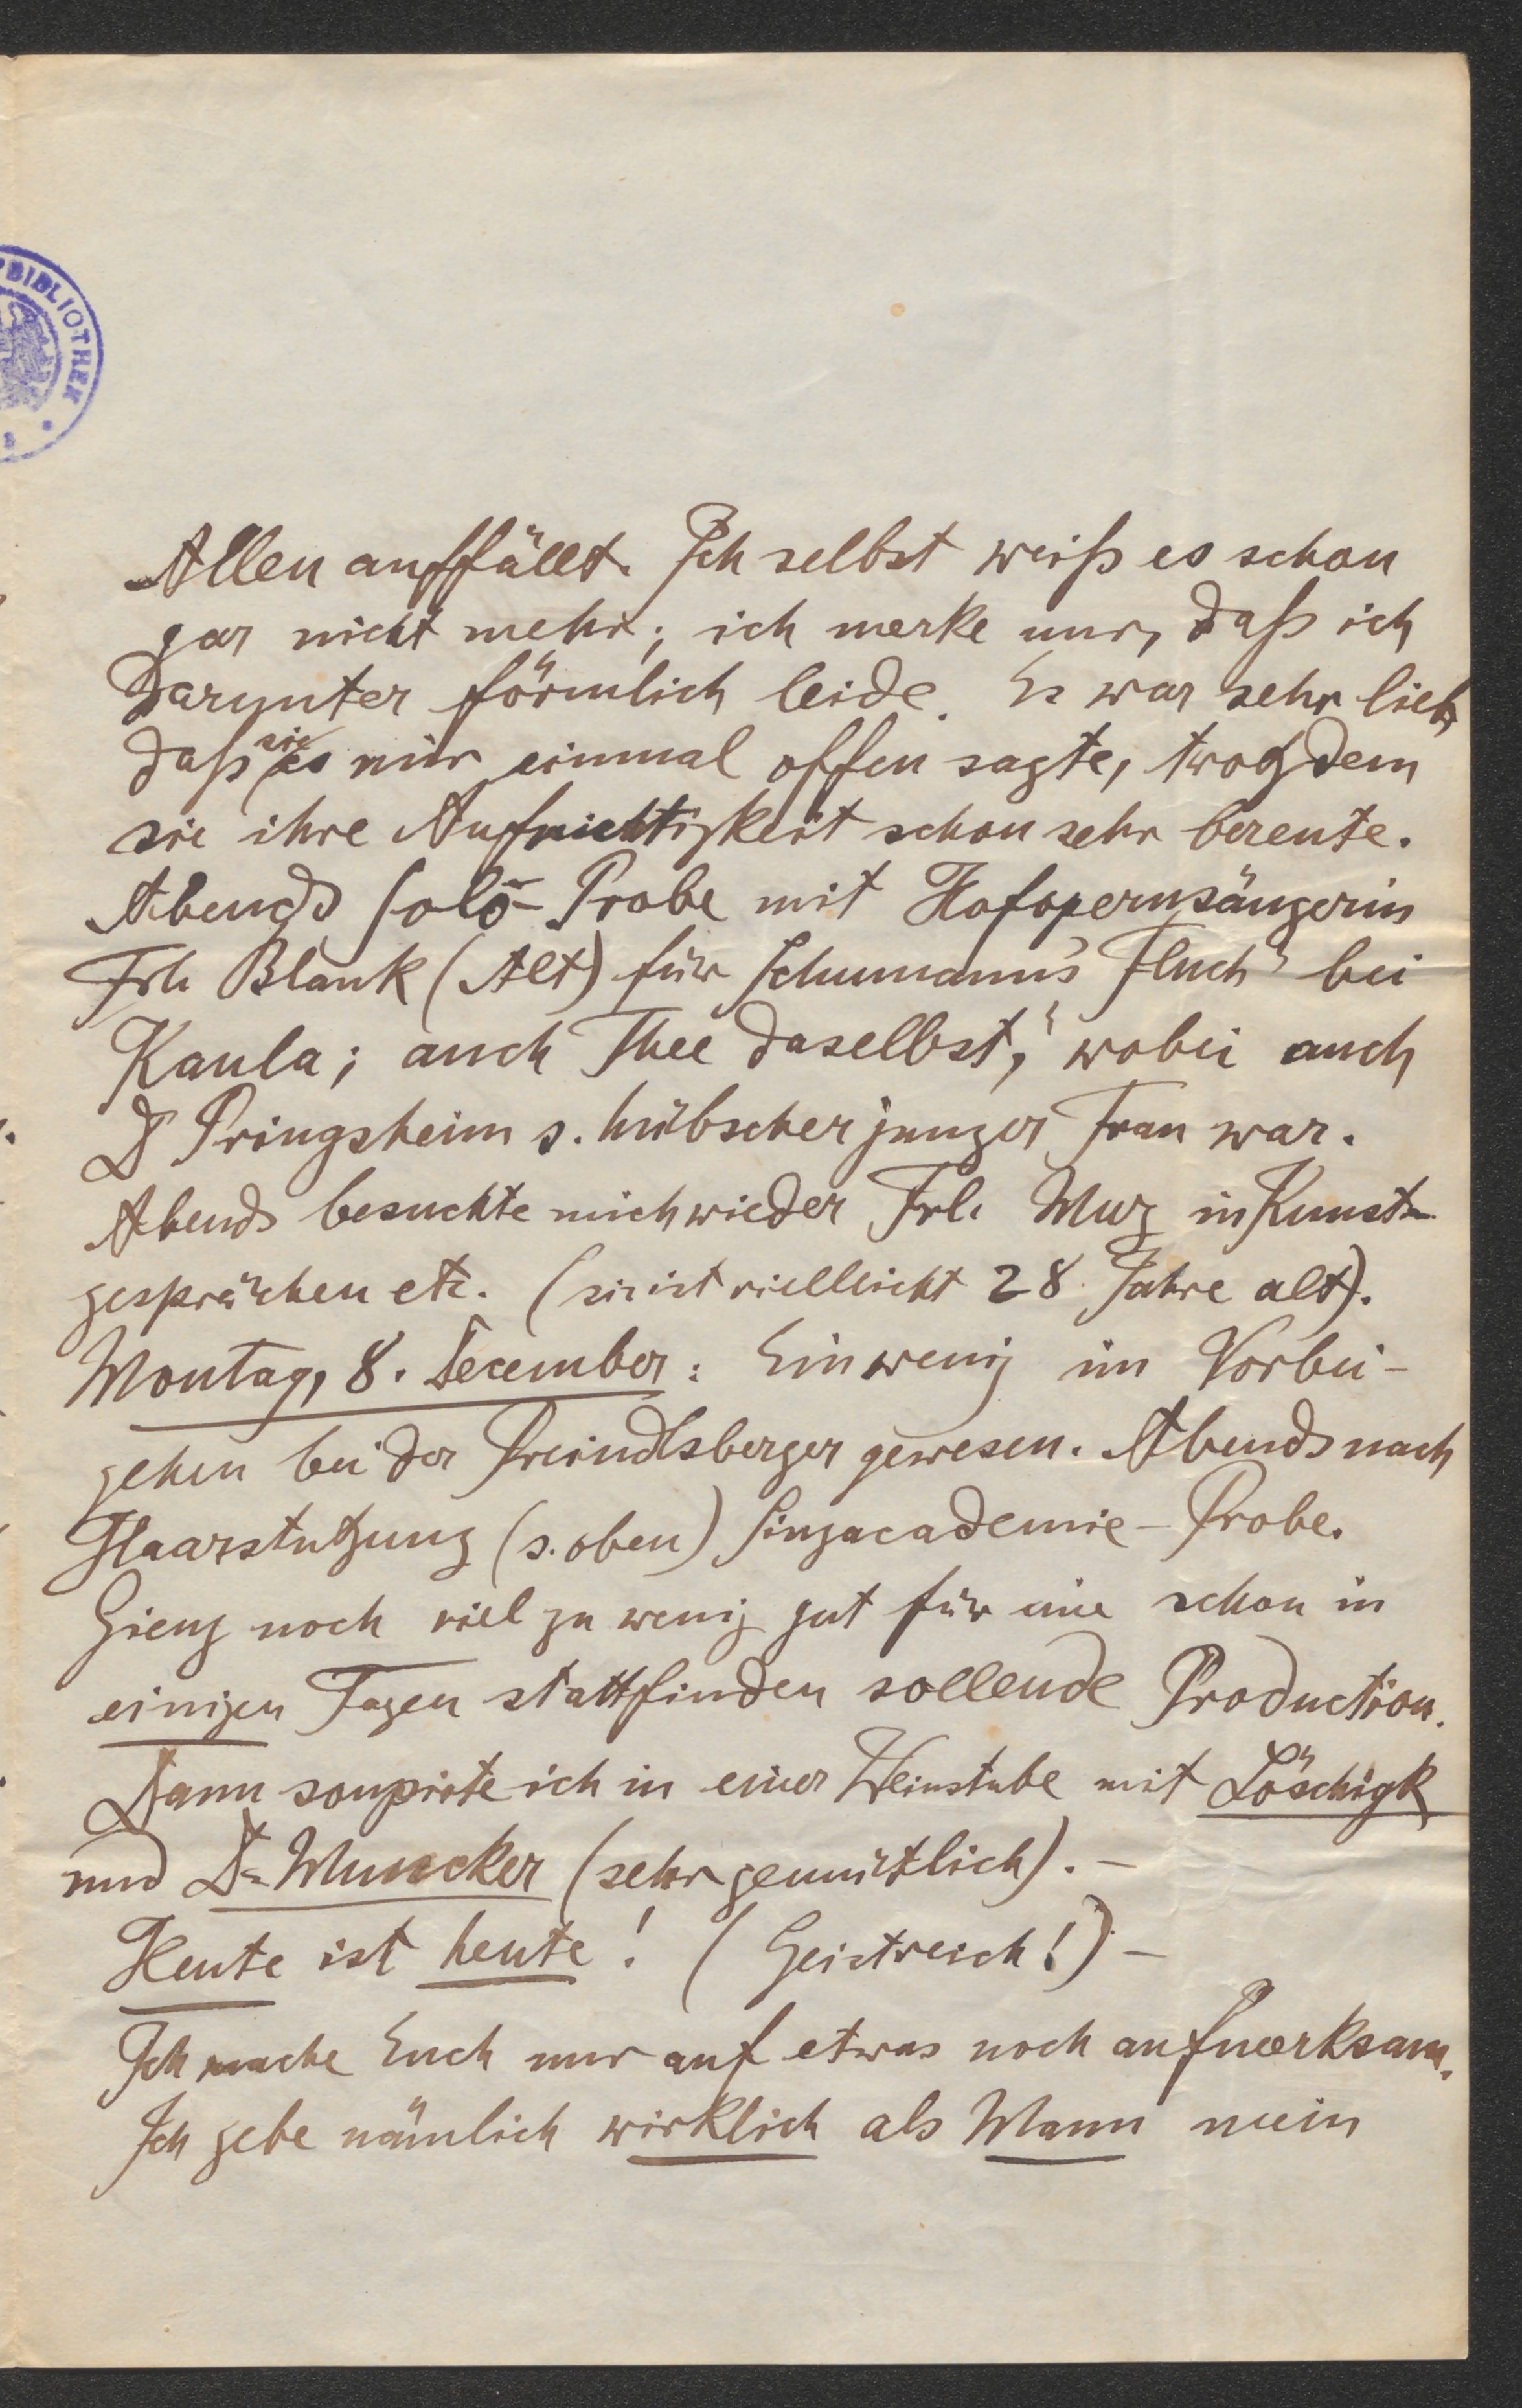 BIBLIOTHEK
Allen auffällt. Ich selbst weiß es schon
gar nicht mehr; ich merke nur, daß ich
darunter förmlich leide. Es war sehr lieb,
daß sie es mir einmal offen sagte, trotzdem
sie ihre Aufrichtigkeit schon sehr bereute.
Abends Solo-Probe mit Hofopernsängerin
Frl. Blank (Alt) für Schumann's "Fluch" bei
Kaula; auch Thee daselbst, wobei auch
Dr Pringsheim s. hübscher junger Frau war.
Abends besuchte mich wieder Frl. Murz in Kunst-
gesprächen etc. (sie ist vielleicht 28 Jahre alt).
Montag, 8. December: Ein wenig im Vorbei-
gehen bei der Preindlsberger gewesen. Abends nach
Haarstutzung (s. oben) Singacademie-Probe.
Gieng noch viel zu wenig gut für eine schon in
einigen Tagen stattfinden sollende Production.
Dann soupirte ich in einer Weinstube mit Löschigk
und Dr. Muncker (sehr gemütlich). –
Heute ist heute! (Geistreich!) –
Ich mache Euch nur auf etwas noch aufmerksam.
Ich gebe nämlich wirklich als Mann mein